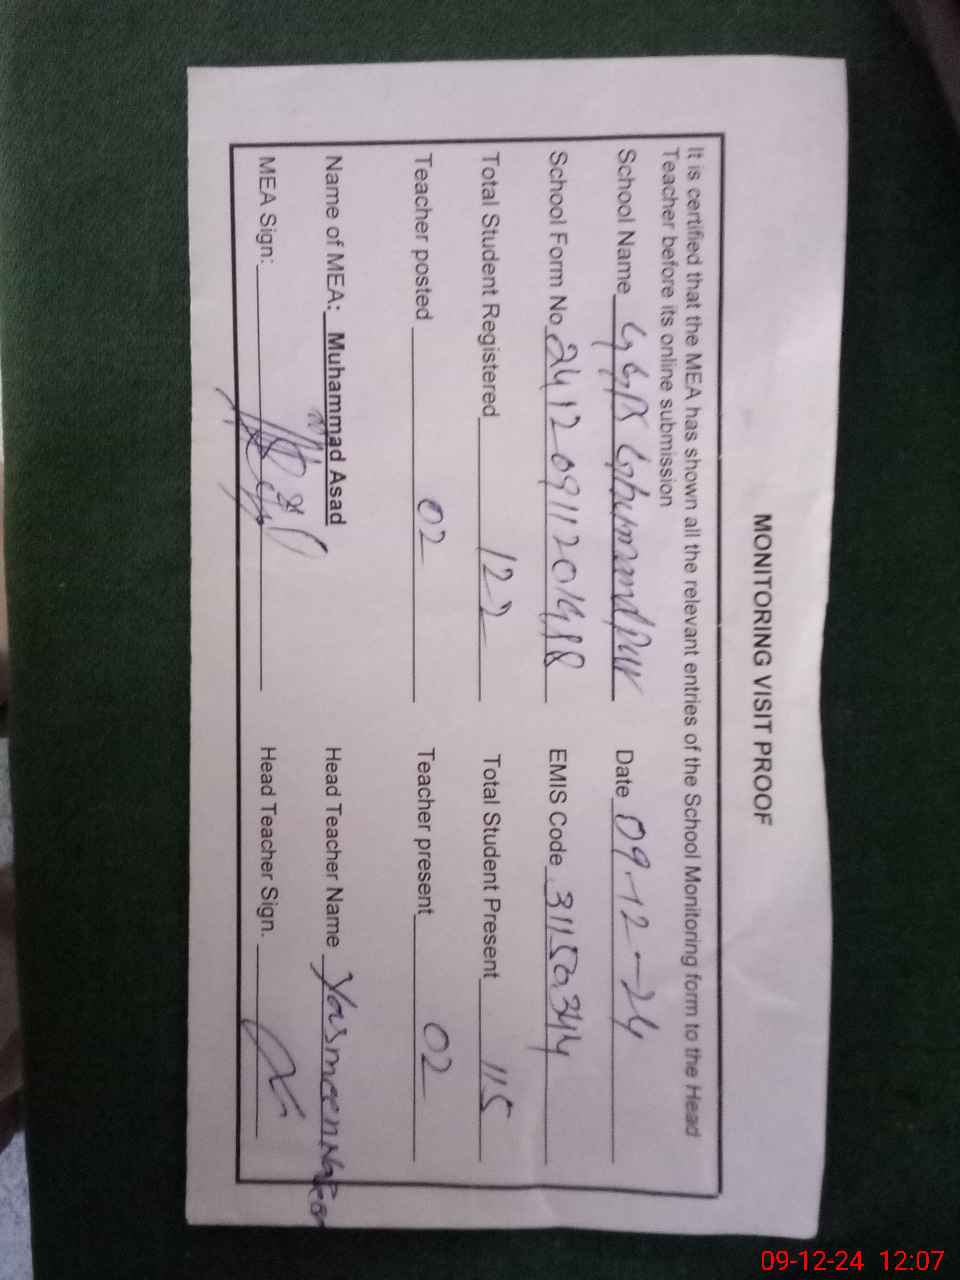 MONITORING VISIT PROOF
It is certified that the MEA has shown all the relevant entries of the School Monitoring form to the Head
Teacher before its online submission
School Name GGPS Ghummd Pur Date 09-12-24
School Form No 24120911201988 EMIS Code 31150344
Total Student Registered 122 Total Student Present 115
Teacher posted 02 Teacher present 02
Name of MEA: Muhammad Asad Head Teacher Name Yasmeen
MEA Sign: Head Teacher Sign.
09-12-24 12:07